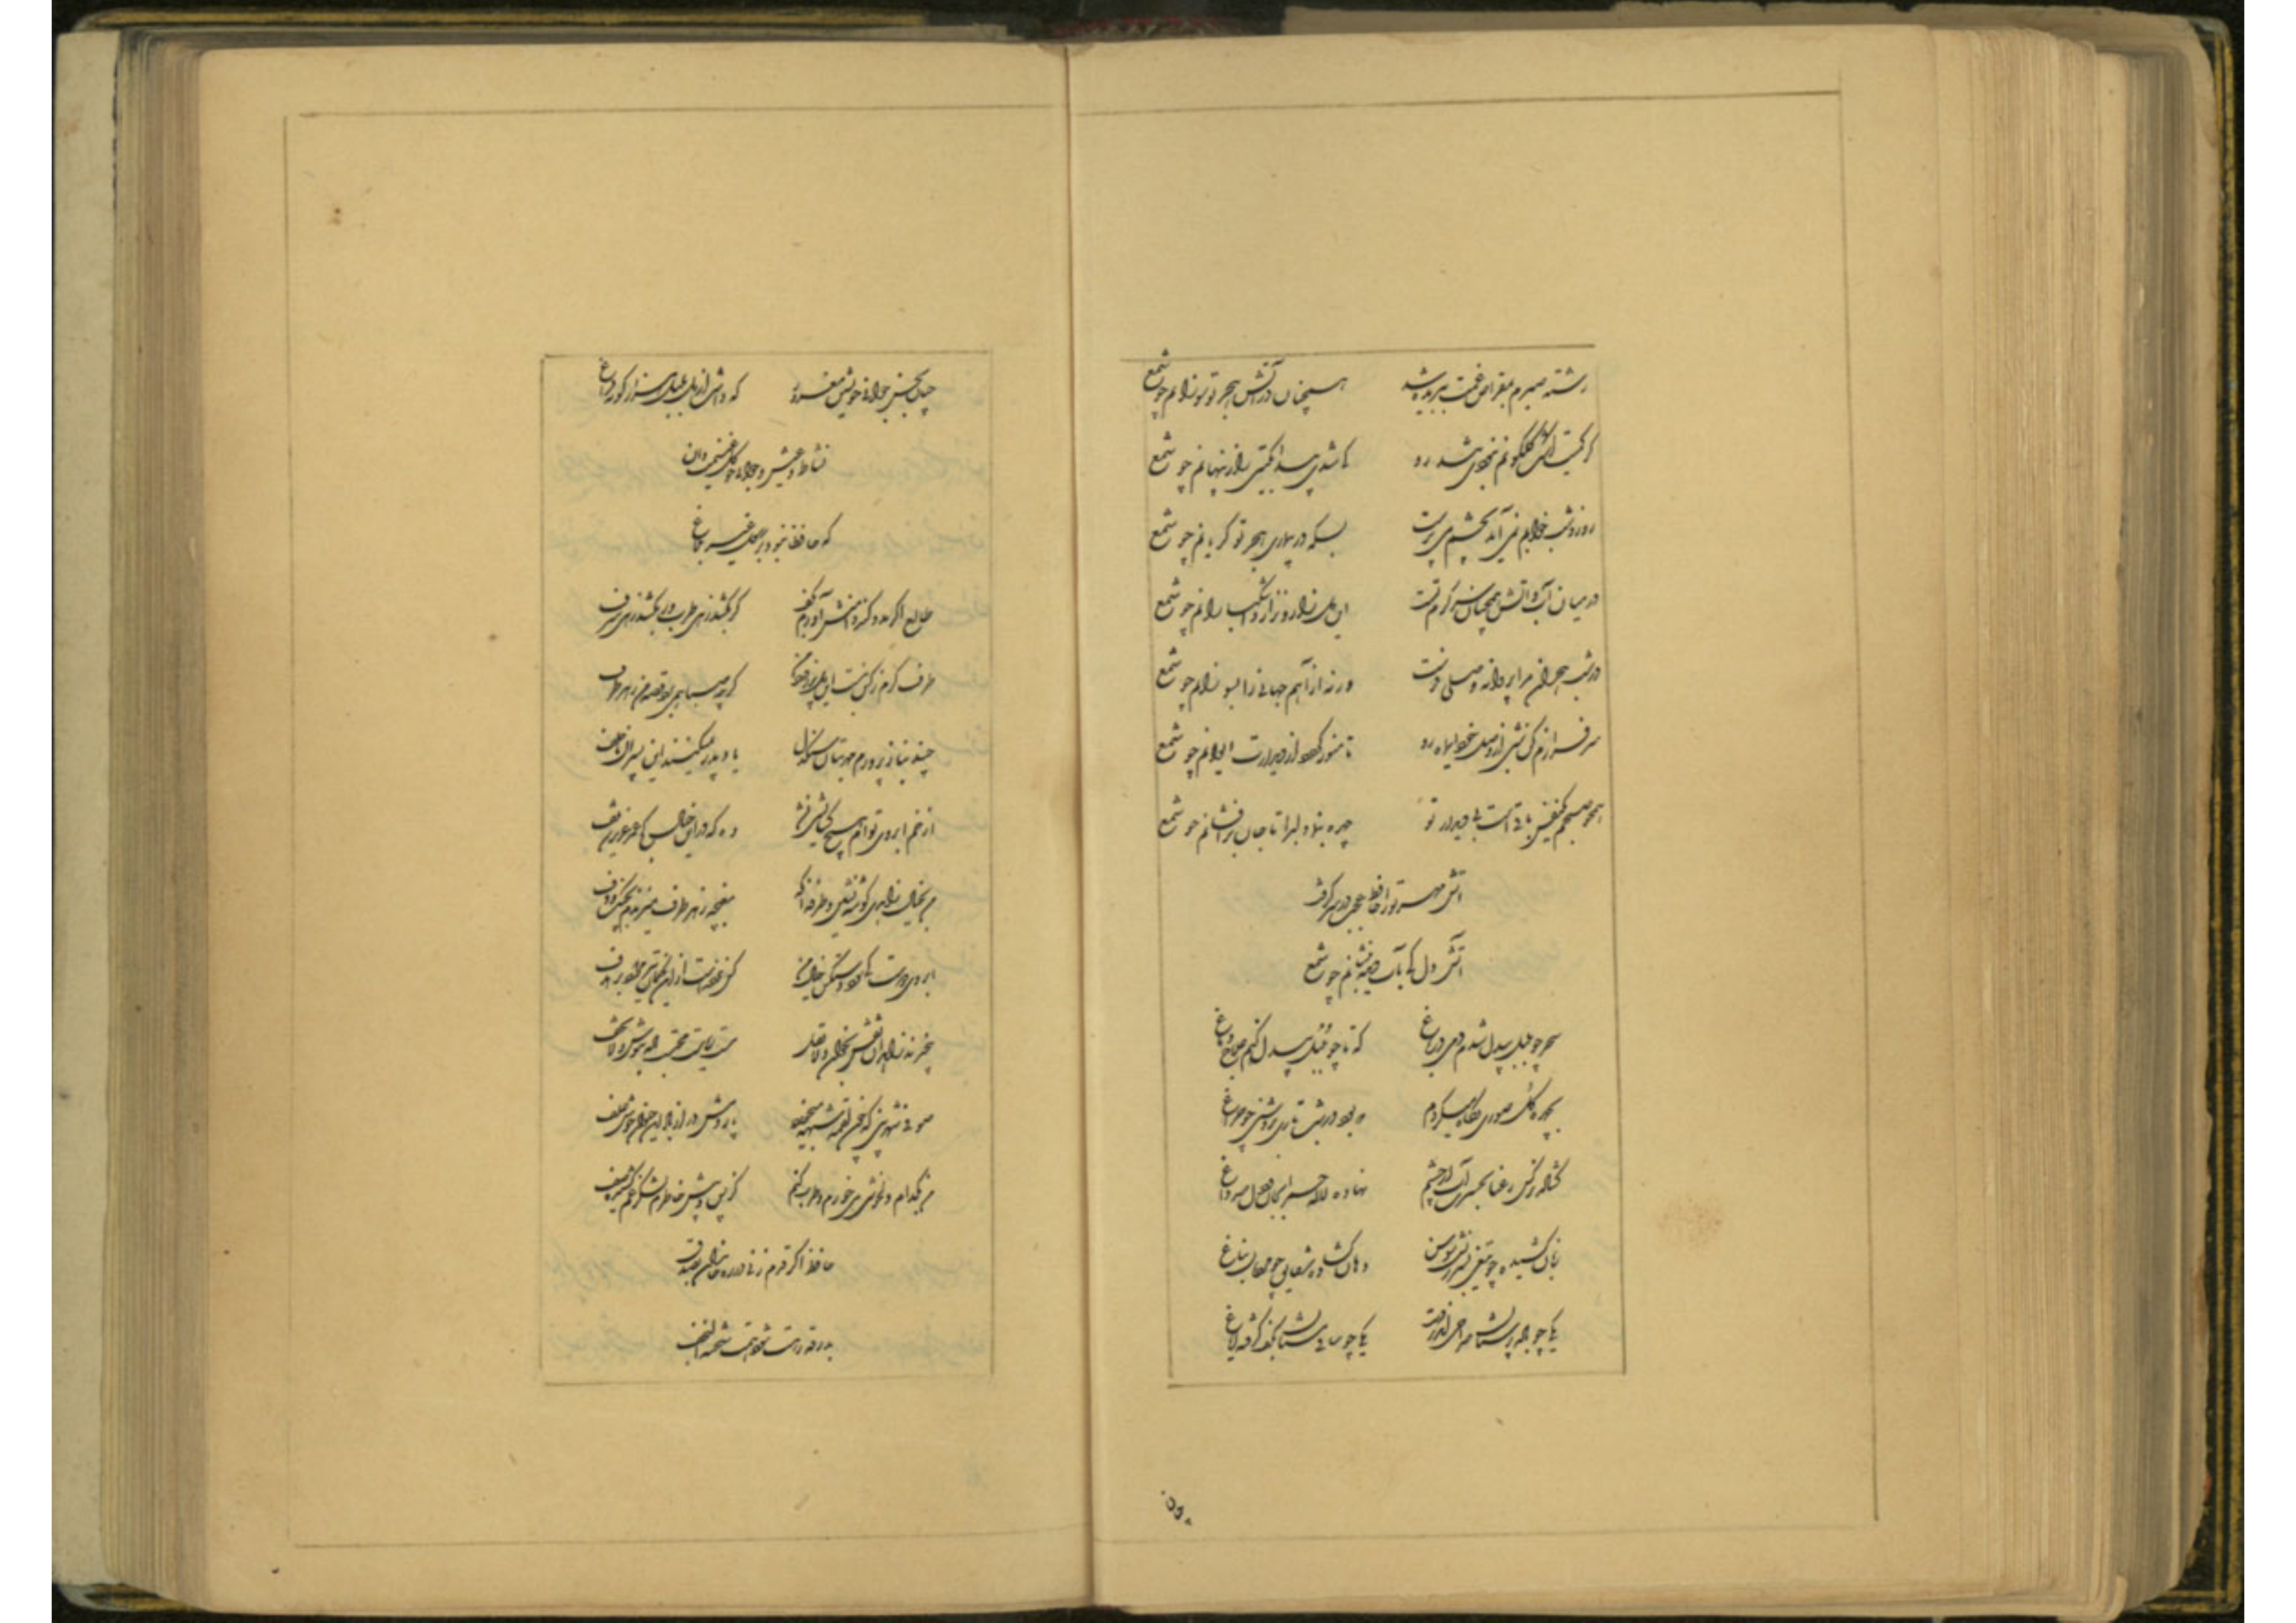 رشته صبرم بمقراض غمت ببریده شد همچنان در آتش هجر تو سوزانم چو شمع
گر کمیت اشک گلگونم نبودی تند رو کی شدی پیدا بگیتی راز پنهانم چو شمع
روز و شب خوابم نمی آید بچشم می پرست بسکه در بیماری هجر تو گریانم چو شمع
در میان آب و آتش همچنان سرگرم تست این دل زار و نزار و اشکبارانم چو شمع
در شب هجران مرا پروانه وصلی فرست ورنه از آهم جهانی را بسوزانم چو شمع
سرفرازم کن شبی از وصل خود ای ماه رو تا منور گردد از دیدارت ایوانم چو شمع
همچو صبحم یکنفس باقی است بی دیدار تو چهره بنما دلبرا تا جان برافشانم چو شمع
آتش مهر ترا حافظ عجب در سر گرفت
آتش دل کی بآب دیده بنشانم چو شمع
سحر چو بلبل بیدل شدم دمی در باغ که تا چو بلبل بیدل کنم علاج دماغ
بچهره گل سوری نگاه میکردم که بود در شب تاری بروشنی چو چراغ
گشاده نرگس رعنا بحسرت آب از چشم نهاده لاله حمرا بجان و دل صد داغ
زبان کشیده چو تیغی بسرزنش سوسن دهان گشاده شقایق چو مردم ایغاغ
یکی چو باده پرستان صراحی اندر دست یکی چو ساقی مستان بکف گرفته ایاغ
چنان بحسن و جوانی خویشتن مغرور که داشت از دل بلبل هزار گونه فراغ
نشاط و عیش و جوانی چو گل غنیمت دان
که حافظا نبود بر رسول غیر بلاغ
طالع اگر مدد کند دامنش آورم بکف گر بکشم زهی طرب ور بکشد زهی شرف
طرف کرم ز کس نبست این دل پر امید من گرچه صبا همی برد قصه من بهر طرف
چند بناز پرورم مهر بتان سنگدل یاد پدر نمیکنند این پسران ناخلف
از خم ابروی توام هیچ گشایشی نشد وه که در این خیال کج عمر عزیز شد تلف
من بخیال زاهدی گوشه نشین و طرفه آنکه مغبچه ز هر طرف میزندم بچنگ و دف
ابروی دوست کی شود دستکش خیال من کس نزدست از این کمان تیر مراد بر هدف
بیخبرند زاهدان نقش بخوان و لا تقل مست ریاست محتسب باده بنوش و لا تخف
صوفی شهر بین که چون لقمه شبهه میخورد پاردمش دراز باد این حیوان خوش علف
من بکدام دلخوشی می خورم و طرب کنم کز پس و پیش خاطرم لشکر غم کشیده صف
حافظ اگر قدم زنی در ره خاندان بصدق
بدرقه رهت شود همت شحنه نجف